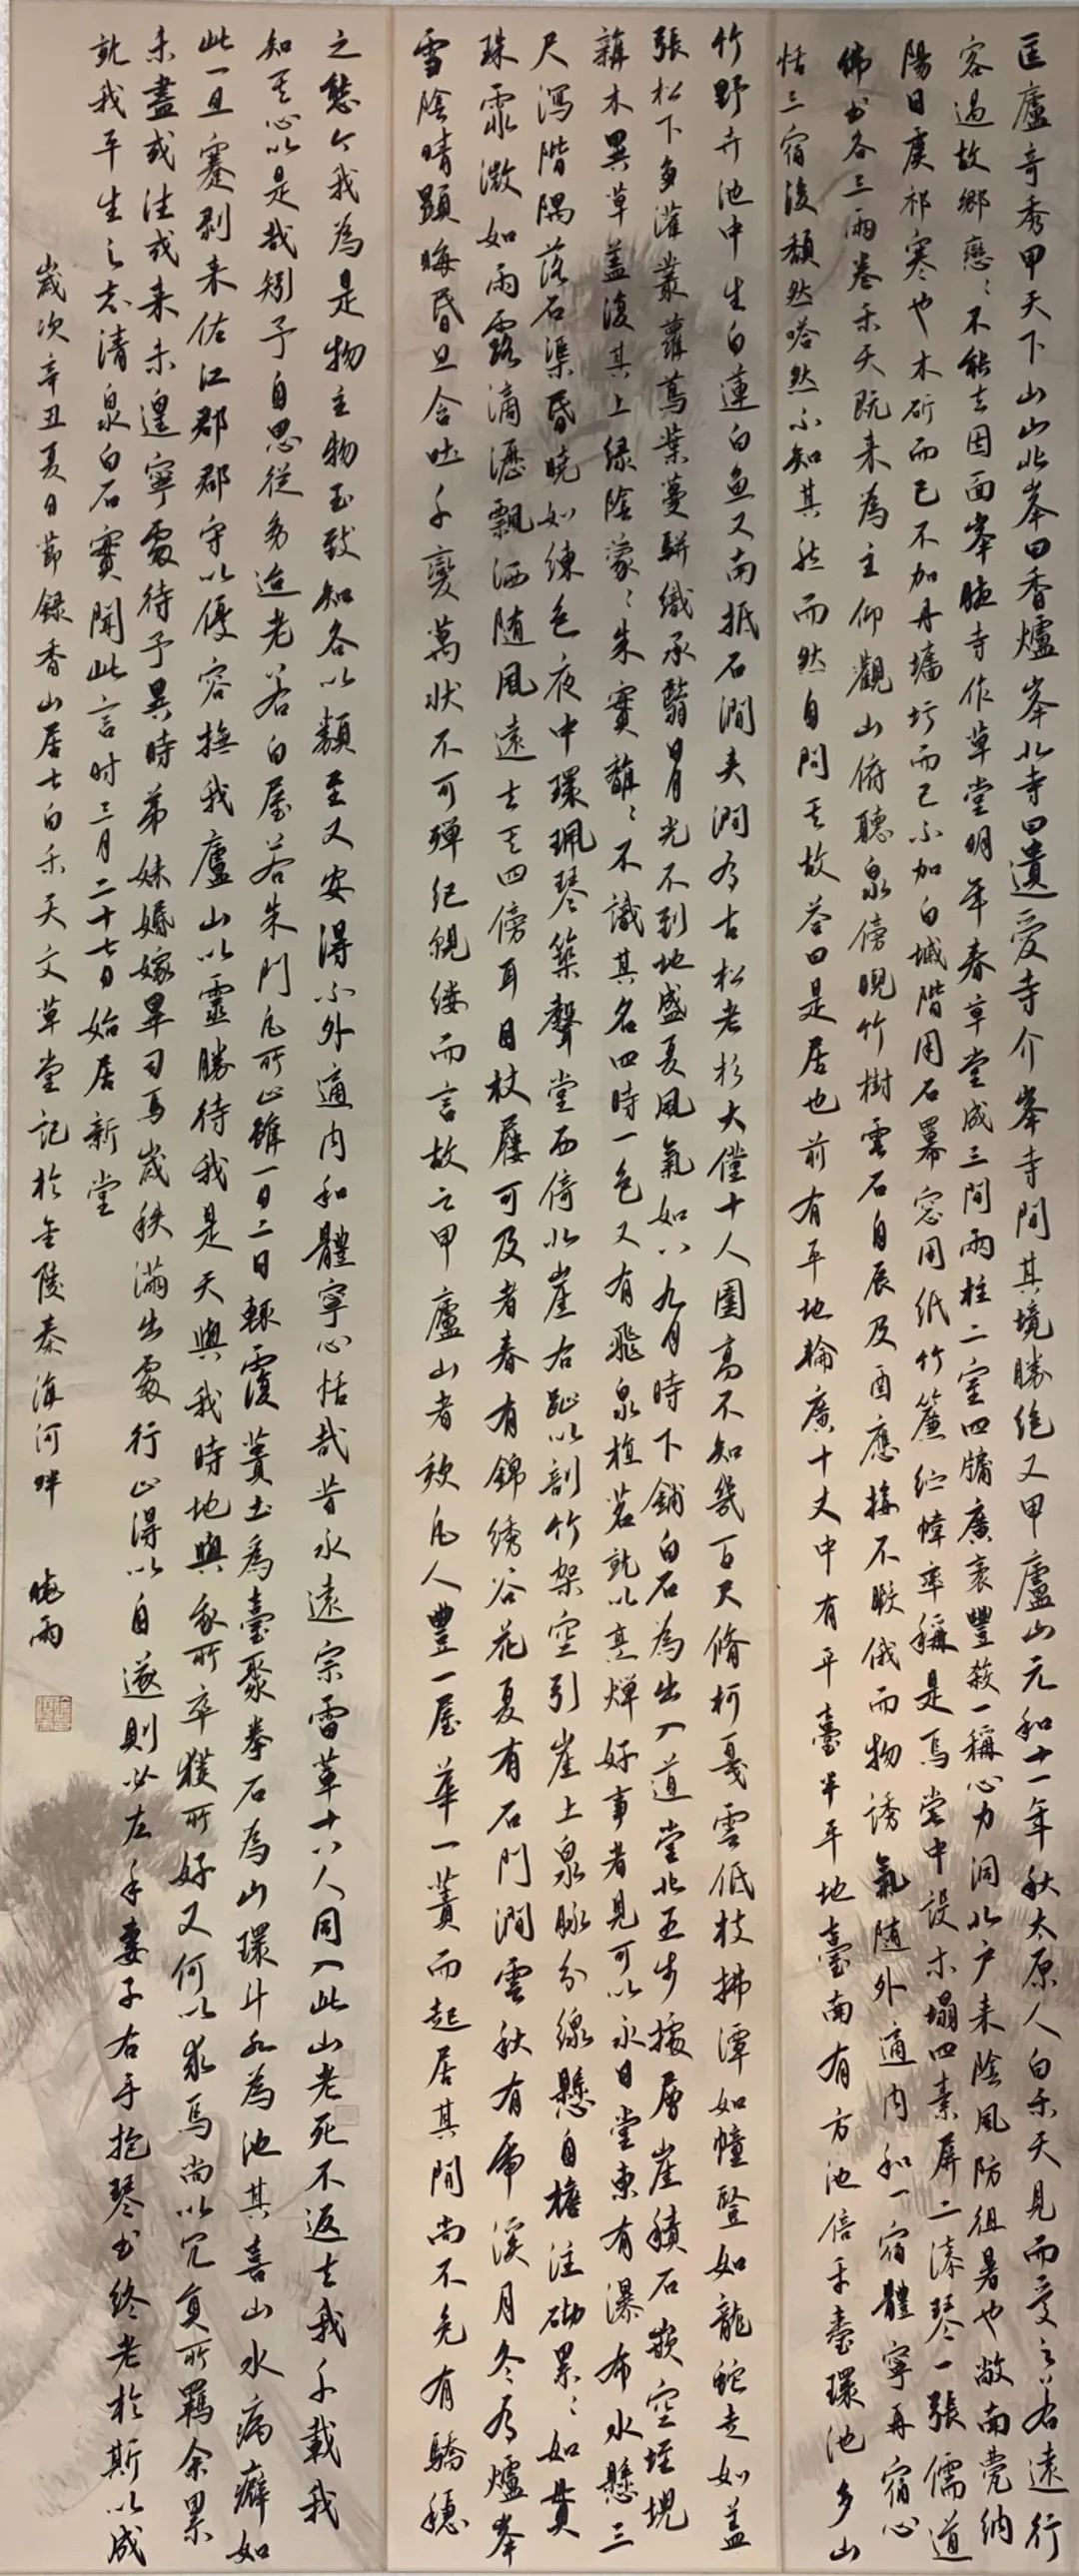 匡廬奇秀甲天下山山北峯曰香爐峯北寺曰遺愛寺介峯寺間其境勝絕又甲廬山元和十一年秋太原人白樂天見而愛之若遠行
客過故鄉戀〻不能去因面峯腋寺作草堂明年春草堂成三間兩柱二室四牖廣袤豐殺一稱心力洞北户来陰風防徂暑也敞南甍納
陽日虞祁寒也木斫而已不加丹墻圬而已不加白墄階用石羃窓用紙竹簾紵幃率稱是焉堂中設木榻四素屏二漆琴一張儒道
佛書各三兩卷樂天既来為主仰觀山俯聽泉傍睨竹樹雲石自辰及酉應接不暇俄而物誘氣随外適内和一宿體寧再宿心
恬三宿後頹然嗒然不知其然而然自問其故答曰是居也前有平地輪廣十丈中有平臺半平地臺南有方池倍平臺環池多山
竹野卉池中生白蓮白魚又南抵石澗夾澗有古松老杉大僅十人圍高不知幾百尺脩柯戛雲低枝拂潭如幢豎如龍蛇走如蓋
張松下多灌叢蘿蔦葉蔓駢織承翳日月光不到地盛夏風氣如八九月時下鋪白石為出入道堂北五步據層崖積石嵌空垤堄
雜木異草蓋覆其上綠陰蒙〻朱實離〻不識其名四時一色又有飛泉植茗就以烹燀好事者見可以永日堂東有瀑布水懸三
尺瀉階隅落石渠昏曉如練色夜中環珮琴築聲堂西倚北崖右趾以剖竹架空引崖上泉脉分線懸自檐注砌累〻如貫
珠霏微如雨露滴瀝飄洒随風遠去其四傍耳目杖屨可及者春有錦綉谷花夏有石門澗雲秋有虎溪月冬有爐峯
雪陰晴顯晦昏旦含吐千變萬状不可殫纪覼缕而言故云甲廬山者欤凡人豐一屋華一簣而起居其間尚不免有驕穩
之態今我為是物主物至致知各以類至又安得不外適内和體寧心恬哉昔永遠宗雷輩十八人同入此山老死不返去我千載我
知其心以是哉矧予自思從幼迨老若白屋若朱門凡所止雖一日二日輒覆蕢土為臺聚拳石為山環斗水為池其喜山水病癖如
此一旦蹇剥来佐江郡郡守以優容撫我廬山以靈勝待我是天與我時地與我所卒獲所好又何以求焉尚以冗員所羈余累
未盡或往或来未遑寧處待予異時弟妹婚嫁畢司馬歲秩滿出處行止得以自遂則必左手妻子右手抱琴书終老於斯以成
就我平生之志清泉白石實聞此言时三月二十七日始居新堂
歲次辛丑夏日節録香山居士白樂天文草堂記於金陵秦淮河畔 曉雨